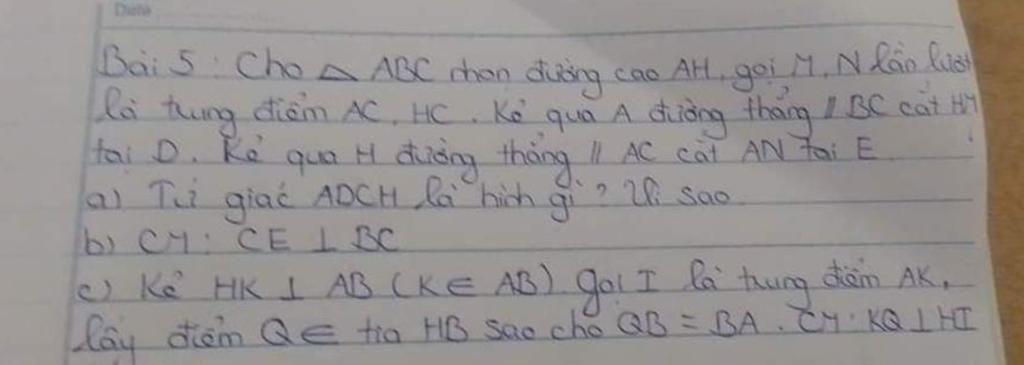 Date
Bài 5 : Cho △ ABC nhọn đường cao AH, gọi M, N lần lượt
là trung điểm AC, HC. Kẻ qua A đường thẳng // BC cắt HM
tại D. Kẻ qua H đường thẳng // AC cắt AN tại E
a) Tứ giác ADCH là hình gì? Vì sao.
b) CM: CE ⊥ BC
c) Kẻ HK ⊥ AB (K ∈ AB) gọi I là trung điểm AK,
lấy điểm Q ∈ tia HB sao cho QB = BA. CM: KQ ⊥ HI